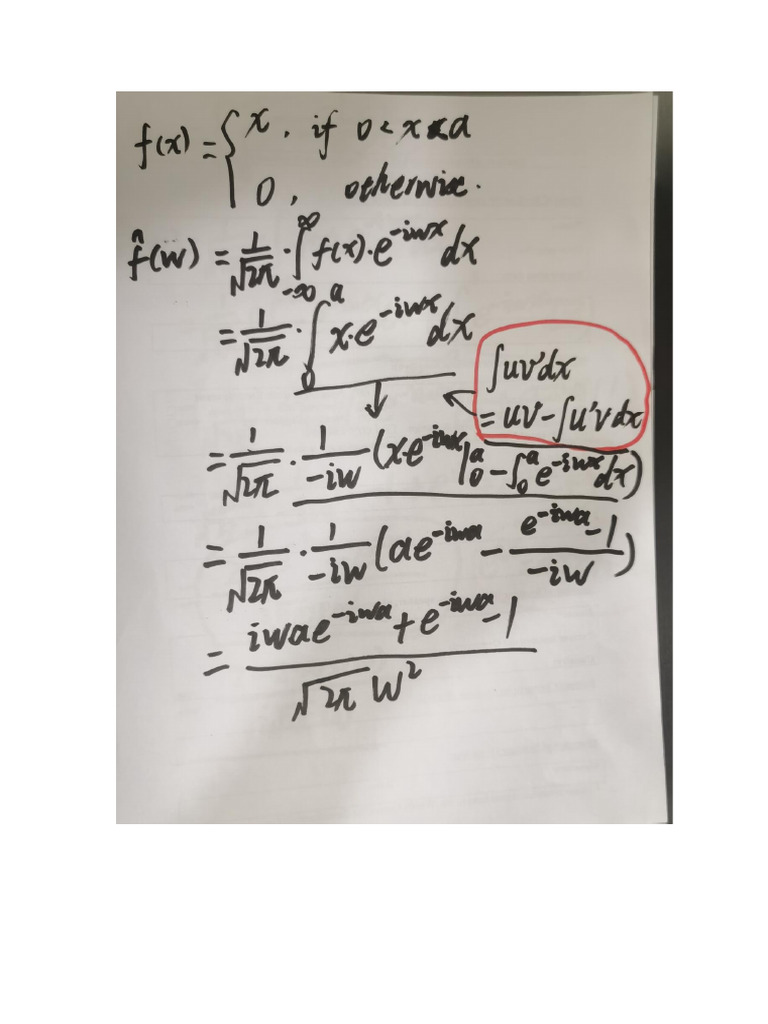 f(x) = { x, if 0 < x < a
0, otherwise.
f̂(w) = 1/√2π · ∫_{-∞}^{∞} f(x)·e^{-iwx} dx
= 1/√2π · ∫_0^a x·e^{-iwx} dx
∫uv'dx
= uv - ∫u'v dx
= 1/√2π · 1/-iw (x·e^{-iwx}|_0^a - ∫_0^a e^{-iwx} dx)
= 1/√2π · 1/-iw (ae^{-iwa} - (e^{-iwa} - 1)/-iw)
= (iwae^{-iwa} + e^{-iwa} - 1)/(√2π w²)